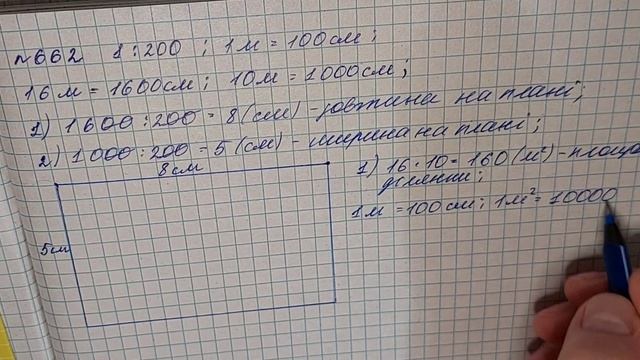 №662 1:200 ; 1м = 100см ;
16м = 1600см ; 10м = 1000см ;
1) 1600:200 = 8 (см) - довжина на плані ;
2) 1000:200 = 5 (см) - ширина на плані ;
8см
5см
1) 16·10 = 160 (м²) - площа
ділянки ;
1м = 100см ; 1м² = 10000